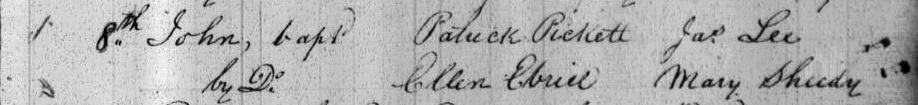 8th John, bapt Patrick Pickett Jas Lee
by Do Ellen Ebrill Mary Sheedy